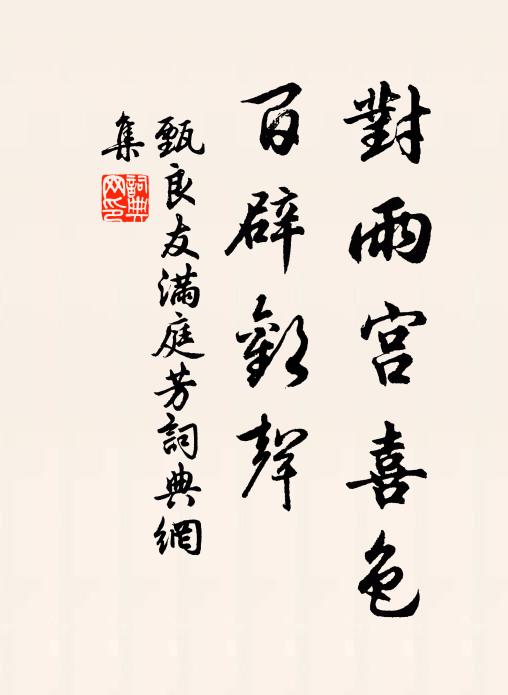 對兩宮喜色
百辟歡聲
甄良友滿庭芳詞典網
集
詞典
网印